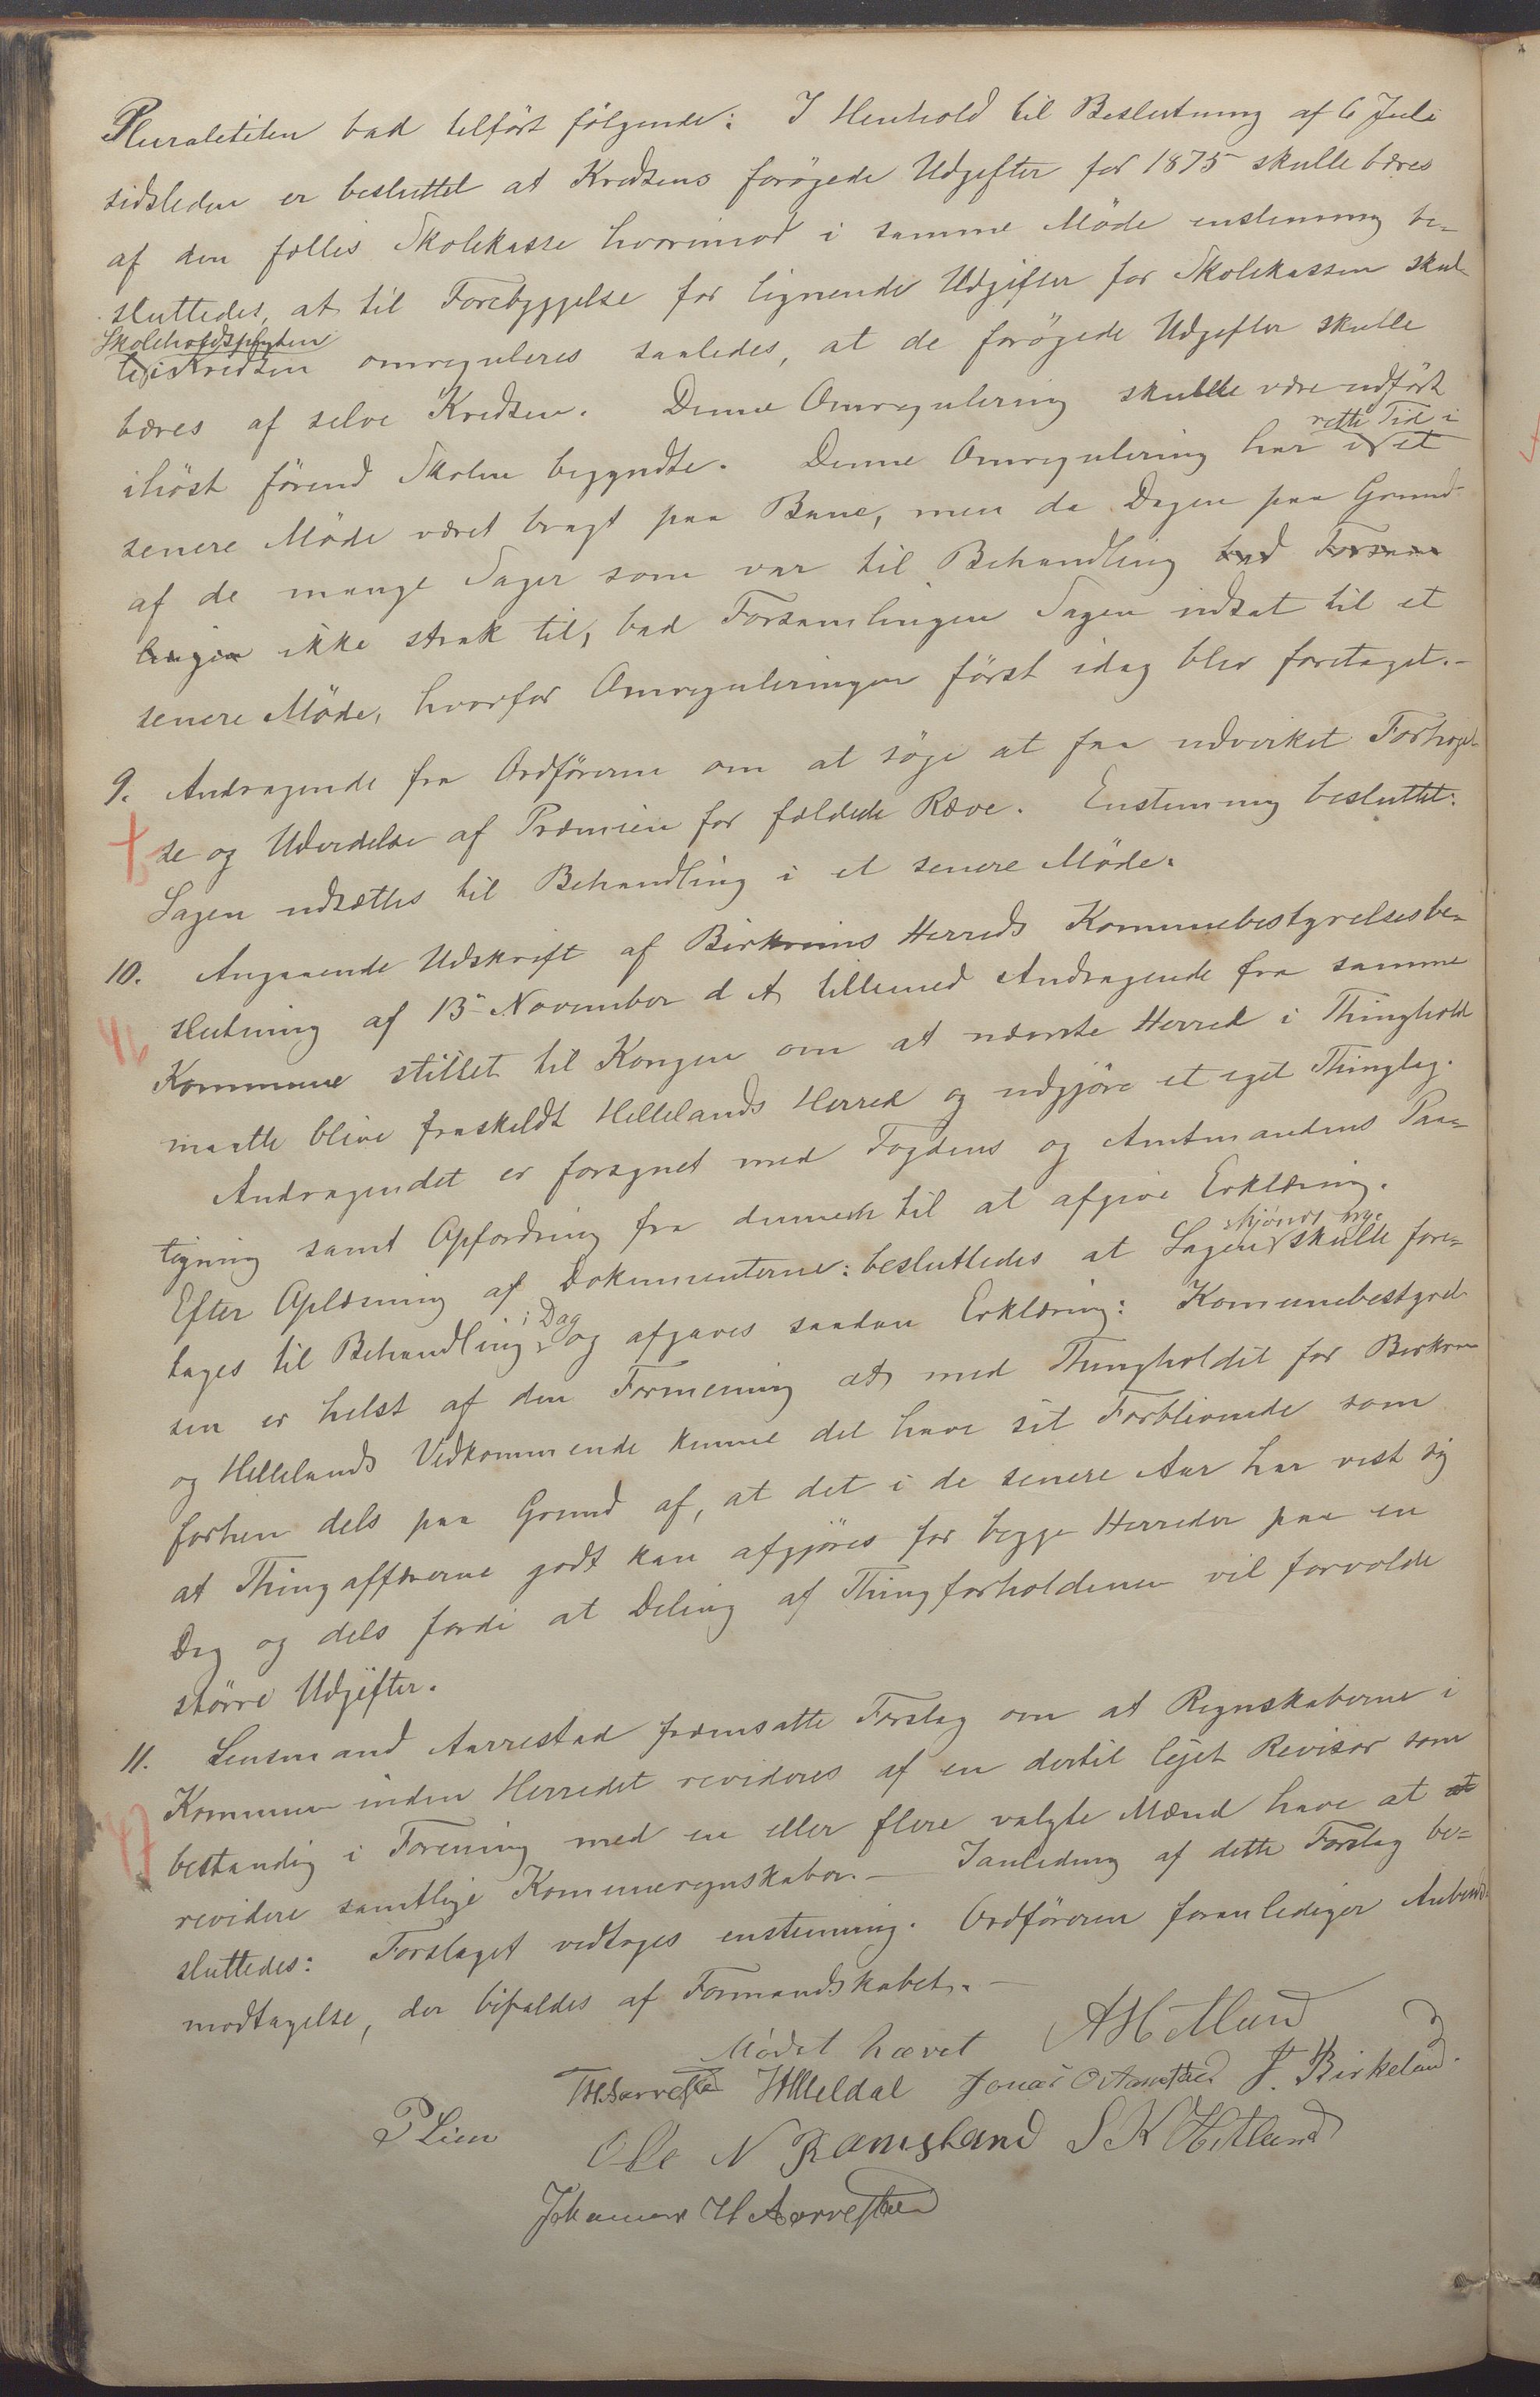 Pluraletiten bad tilført følgende: I Henhold til Beslutning af 6 Juli
sidsleden er besluttet at Kredsens forøgede Udgifter for 1875 skulle bæres
af den fælles Skolekasse hvorimod i samme Møde enstemmig be-
sluttedes, at til Forebyggelse for lignende Udgifter for Skolekassen skul-
Skoleholdspligten
le i Kredsen omreguleres saaledes, at de forøgede Udgifter skulle
bæres af selve Kredsen. Denne Omregulering skulle være udført
rette Tid i
ihøst førend Skolen begyndte. Denne Omregulering har i et
senere Møde været bragt paa Bane, men da Dagen paa Grund
af de mange Sager som var til Behandling bad Forsam
lingen ikke strak til, bad Forsamlingen Sagen udsat til et
senere Møde, hvorfor Omreguleringen først idag blev foretaget.-
9. Andragende fra Ordføreren om at søge at faa udvirket Forhøiel-
se og Uddeelse af Præmien for fældede Ræve. Enstemmig besluttet:
Sagen udsættes til Behandling i et senere Møde.
10. Angaaende Udskrift af Birkrims Herreds Kommunebestyrelsesbe-
slutning af 13 November d A tillemed Andragende fra samme
46
Kommune stillet til Kongen om at nævnte Herred i Thinghold
maatte blive fraskeldt Hellelands Herred og udgjøre et eget Thinglag.
Andragendet er forsynet med Fogdens og Amtmandens Paa-
tegning samt Opfordring fra dennem til at afgive Erklæring.
skjønt nye
Efter Oplæsning af Dokumenterne: besluttedes at Sagen skulde fore-
i Dag
tages til Behandling og afgaves saadan Erklæring: Kommunebestyrel-
sen er helst af den Formening at med Thingholdet for Birkrem
og Hellelands Vedkommende kunne det have sit Forblivende som
forhen dels paa Grund af, at det i de senere Aar har vist sig
at Thingaffærerne godt kan afgjøres for begge Herreder paa en
Dag og dels fordi at Deling af Thingforholdenen vil forvolde
større Udgifter.
11. Lensmand Aarrestad fremsatte Forslag om at Regnskaberne i
Kommunen inden Herredet revideres af en dertil lejet Revisor som
47
bestandig i Forening med en eller flere valgte Mænd have at at
revidere samtlige Kommuneregnskaber.- Ianledning af dette Forslag be-
sluttedes: Forslaget vedtoges enstemmig. Ordføreren foranlediger Anbuds-
modtagelse, der bifaldes af Formandskabet.-
Mødet hævet A Hetland
TH Aarrestad Meldal Jonas O Aarrestad J. Birkeland.
P Lien
Ole N Ramsland S K Hetland
Johannes H Aarrestad